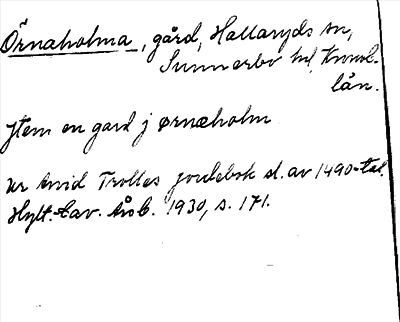 Örnaholma, gård, Hallaryds sn,
Sunnerbo hd, Kronob.
län.
Jtem en gard j ørnæholm
ur Arvid Trolles jordebok sl. av 1490-tal.
Hylt.-Cav. Årsb. 1930, s. 171.